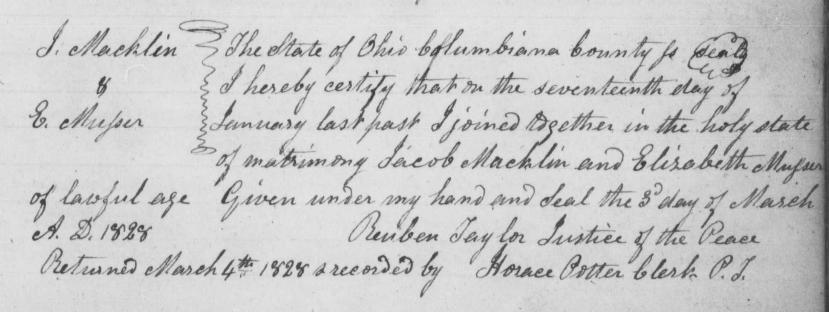 J. Macklin The State of Ohio Columbiana County ss seal
& I hereby certify that on the seventeenth day of
E. Musser January last past I joined together in the holy state
of matrimony Jacob Macklin and Elizabeth Musser
of lawful age Given under my hand and seal the 3d day of March
A. D. 1828 Reuben Taylor Justice of the Peace
Returned March 4th 1828 & recorded by Horace Potter Clerk P. T.